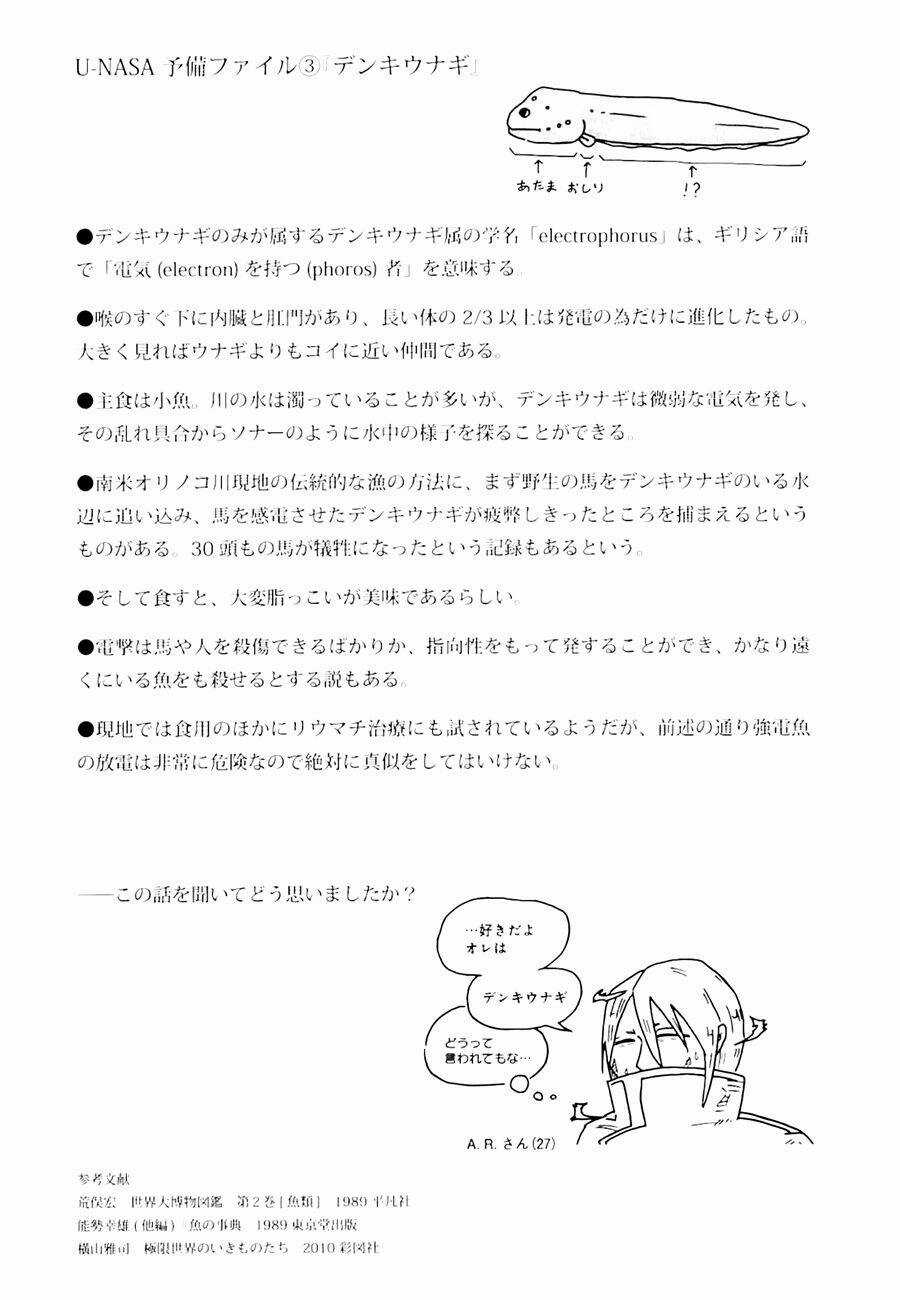 U-NASA 予備ファイル③「デンキウナギ」
あたま
おしり
!?
●デンキウナギのみが属するデンキウナギ属の学名「electrophorus」は、ギリシア語
で「電気 (electron) を持つ (phoros) 者」を意味する。
●喉のすぐ下に内臓と肛門があり、長い体の 2/3 以上は発電の為だけに進化したもの。
大きく見ればウナギよりもコイに近い仲間である。
●主食は小魚。川の水は濁っていることが多いが、デンキウナギは微弱な電気を発し、
その乱れ具合からソナーのように水中の様子を探ることができる。
●南米オリノコ川現地の伝統的な漁の方法に、まず野生の馬をデンキウナギのいる水
辺に追い込み、馬を感電させたデンキウナギが疲弊しきったところを捕まえるという
ものがある。30 頭もの馬が犠牲になったという記録もあるという。
●そして食すと、大変脂っこいが美味であるらしい。
●電撃は馬や人を殺傷できるばかりか、指向性をもって発することができ、かなり遠
くにいる魚をも殺せるとする説もある。
●現地では食用のほかにリウマチ治療にも試されているようだが、前述の通り強電魚
の放電は非常に危険なので絶対に真似をしてはいけない。
――この話を聞いてどう思いましたか？
…好きだよ
オレは
デンキウナギ
どうって
言われてもな…
A. R. さん (27)
参考文献
荒俣宏　世界大博物図鑑　第2巻 [ 魚類 ]　1989 平凡社
能勢幸雄 ( 他編 )　魚の事典　1989 東京堂出版
横山雅司　極限世界のいきものたち　2010 彩図社